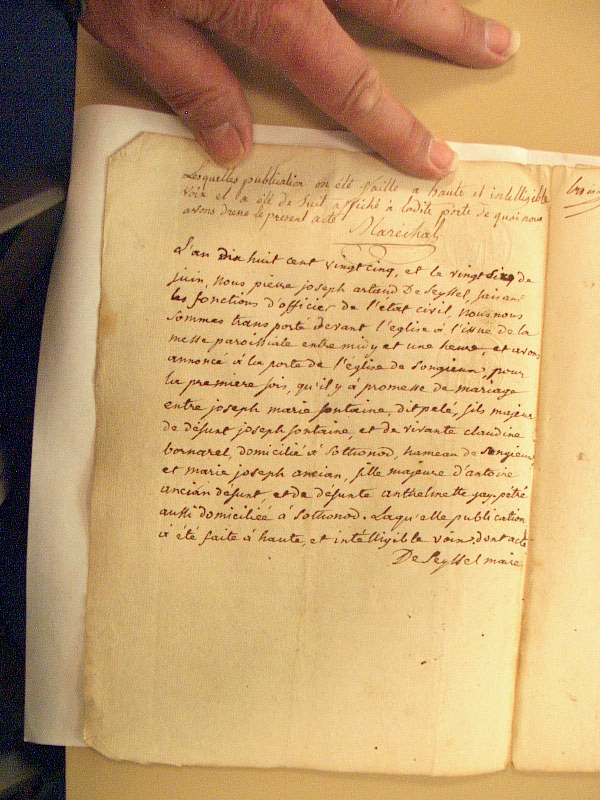 Lesquelles publication on été faitte a haute et intelligible
voix et a été de suit affiché à ladite porte de quoi nous
avons dressé le present acte
Maréchal
L'an dix huit cent vingt cinq, et le vingt six de
juin, Nous pierre joseph artaud De Seyssel, faisant
les fonctions d'officier de l'état civil, Nous nous
Sommes transporté devant l'église à l'issue de la
messe paroissiale entre midy et une heure, et avons
annoncé à la porte de l'église de Songieux, pour
la premiere fois, qu'il y à promesse de mariage
entre joseph marie fontaine, dit pelé, fils majeur
de défunt joseph fontaine et de vivante claudine
bornarel, domicilié à Sothonod, hameau de Songieux,
et marie joseph ancian, fille majeure d'antoine
ancian défunt, et de défunte anthelmette gay, pétré
aussi domiciliée à Sothonod. Laqu'elle publication
à été faite à haute, et intelligible voix. dont acte
De Seyssel maire